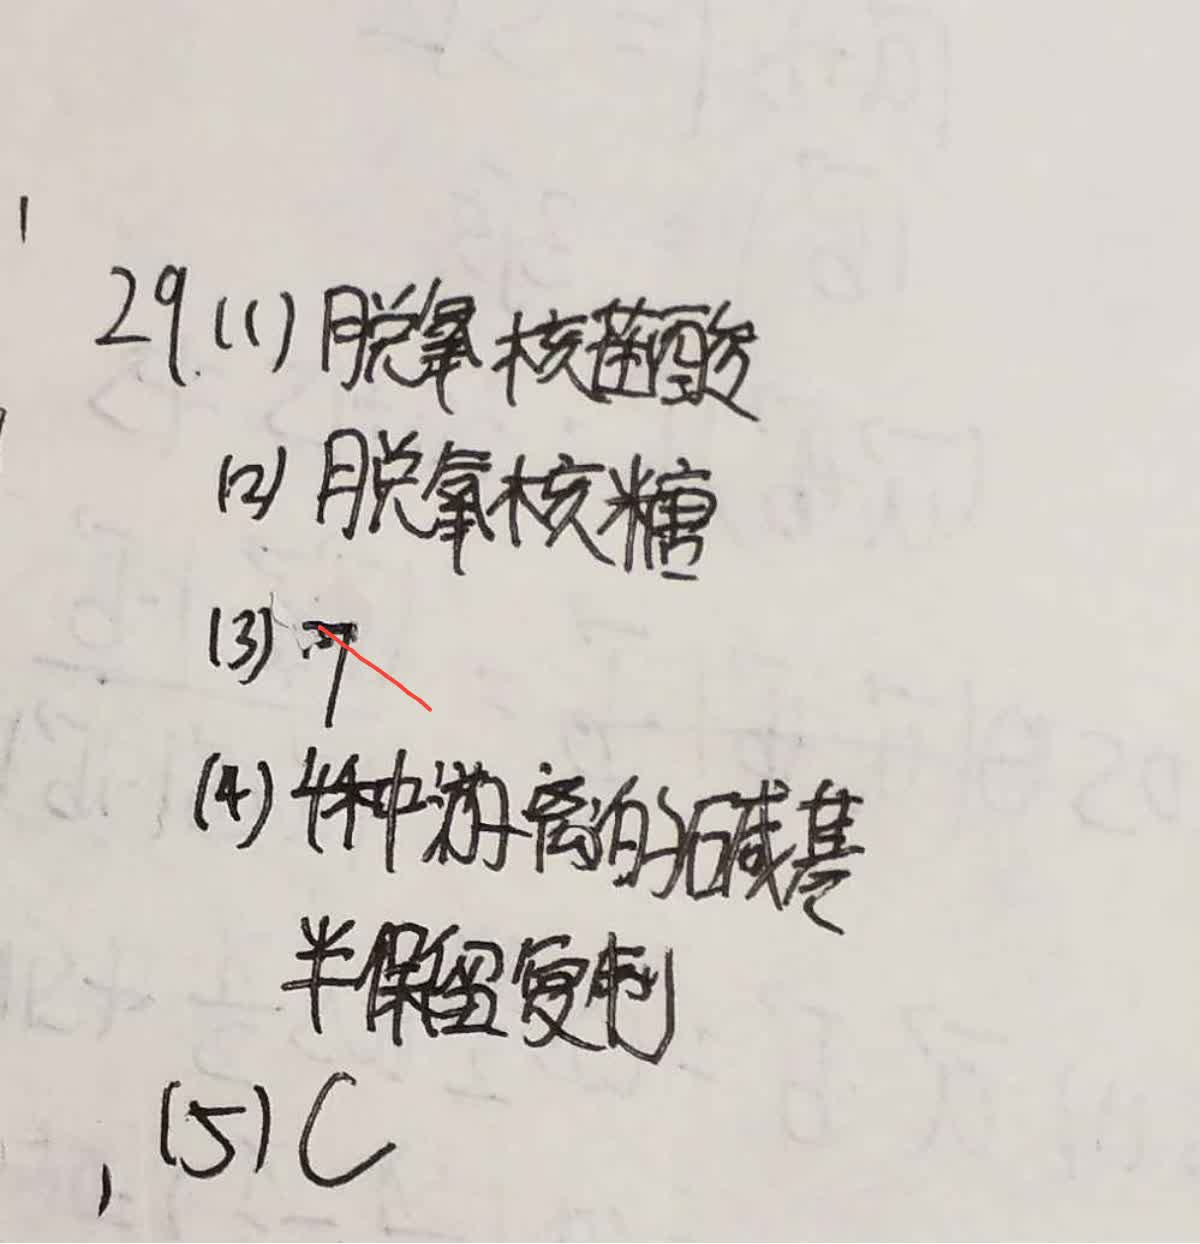 29.(1)脱氧核苷酸
(2)脱氧核糖
(3)7
(4)4种游离的碱基
半保留复制
(5)C